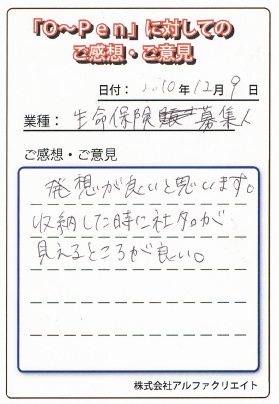 「O～Pen」に対しての
ご感想・ご意見
日付：2010年12月9日
業種：生命保険募集人
ご感想・ご意見
発想が良いと思います。
収納した時に社名が
見えるところが良い。
株式会社アルファクリエイト